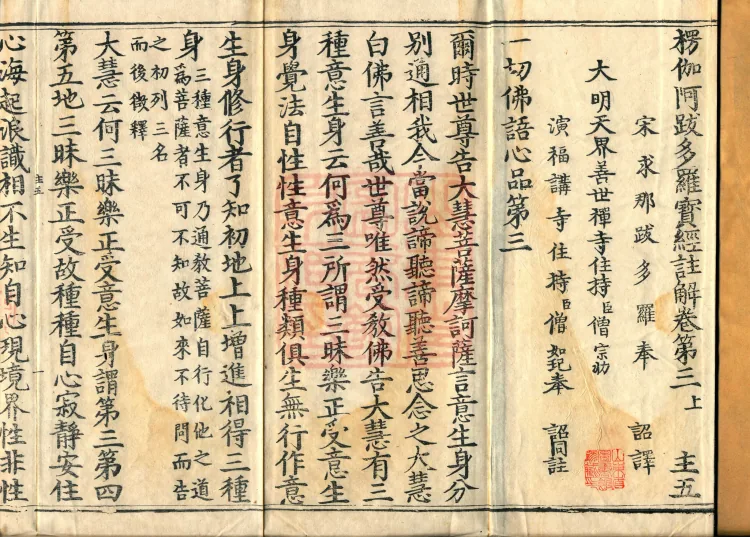 楞伽阿跋多羅寶經註解卷第三上 主五
宋求那跋多羅奉 詔譯
大明天界善世禪寺住持臣僧宗泐
演福講寺住持臣僧如𤣱奉 詔同註
一切佛語心品第三
爾時世尊告大慧菩薩摩訶薩言意生身分
別通相我今當說諦聽諦聽善思念之大慧
白佛言善哉世尊唯然受教佛告大慧有三
種意生身云何為三所謂三昧樂正受意生
身覺法自性性意生身種類俱生無行作意
生身修行者了知初地上上增進相得三種
身三種意生身乃通教菩薩自行化他之道
為菩薩者不可不知故如來不待問而告
之初列三名
而後徵釋
大慧云何三昧樂正受意生身謂第三第四
第五地三昧樂正受故種種自心寂靜安住
主五 一
心海起浪識相不生知自心現境界性非性